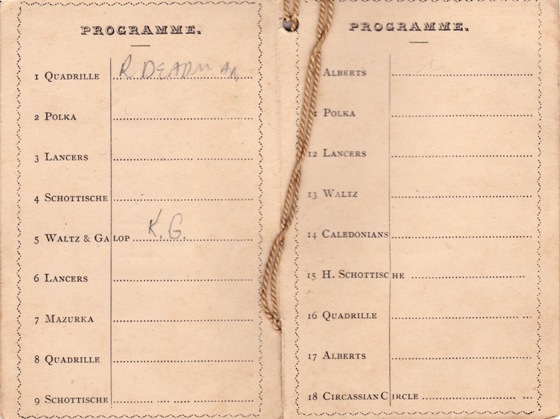 PROGRAMME.
1 QUADRILLE R DEARMAN
2 POLKA
3 LANCERS
4 SCHOTTISCHE
5 WALTZ & GALOP K.G.
6 LANCERS
7 MAZURKA
8 QUADRILLE
9 SCHOTTISCHE
PROGRAMME.
ALBERTS
1 POLKA
12 LANCERS
13 WALTZ
14 CALEDONIANS
15 H. SCHOTTISCHE
16 QUADRILLE
17 ALBERTS
18 CIRCASSIAN CIRCLE